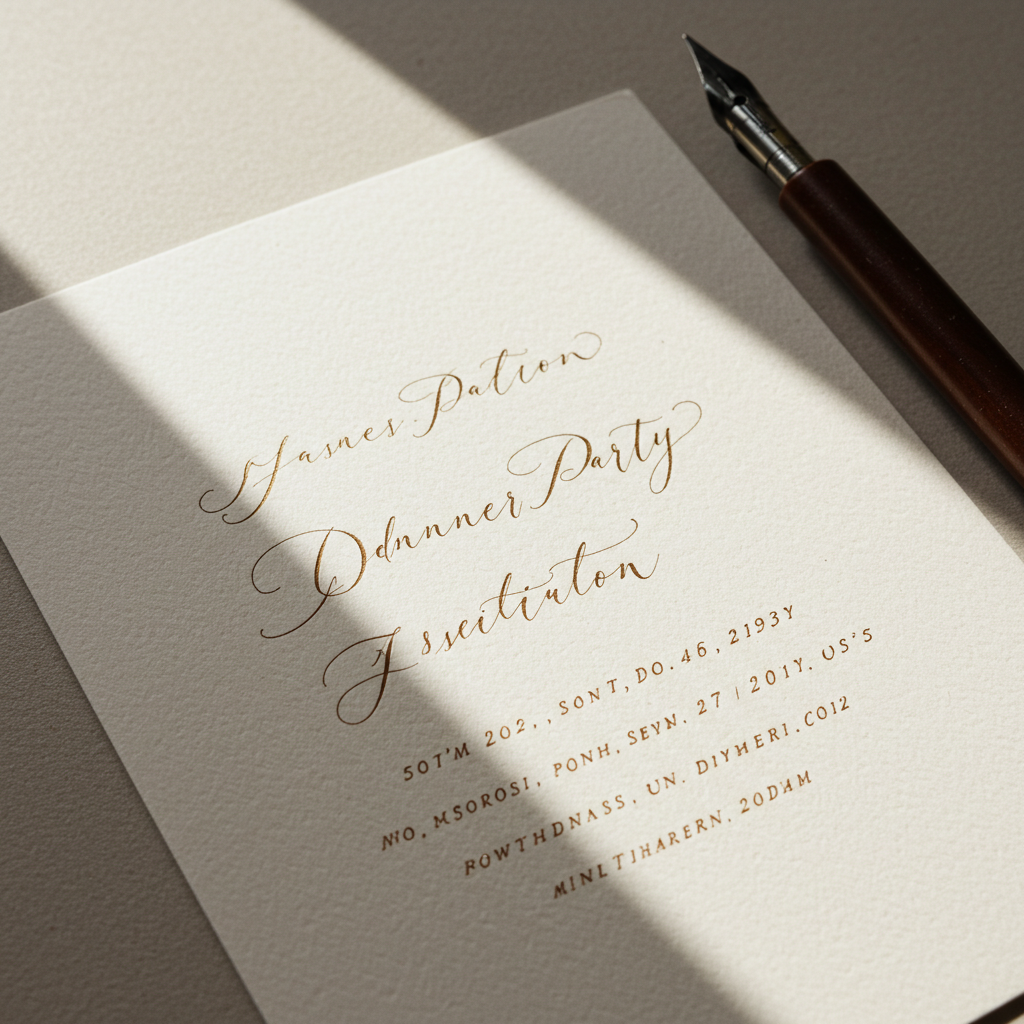 Jasnes. Pation
Ddnnner Party
Isseitiuton
50T'M 202,, SONT, DO. 46, 2193Y
NVO, MSOROSI, PONH, SEYN. 27 | 201Y. US'S
ROWTHDNASS, UN. DIYHERI. CO12
MINLTIHARERN, 20DAM